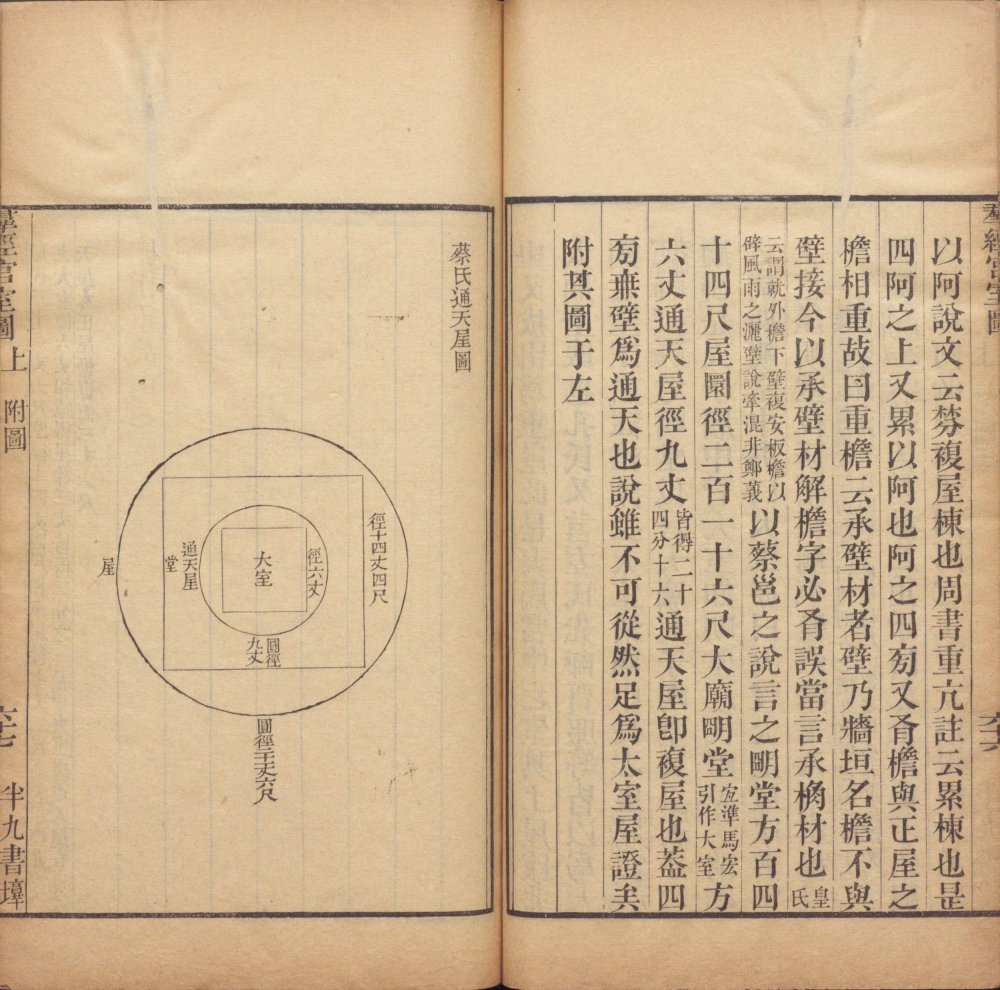 羣經宮室圖
六十六
以阿說文云棼複屋棟也周書重亢註云累棟也是
四阿之上又累以阿也阿之四旁又有檐與正屋之
檐相重故曰重檐云承壁材者壁乃牆垣名檐不與
壁接今以承壁材解檐字必有誤當言承桷材也皇氏
云謂就外檐下壁複安板檐以辟風雨之灑壁說牽混非鄭義以蔡邕之說言之朙堂方百四
十四尺屋圜徑二百一十六尺大廟朙堂宐準馬宏引作大室方
六丈通天屋徑九丈皆得二十四分十六通天屋卽複屋也葢四
旁無壁爲通天也說雖不可從然足爲太室屋證矣
附其圖于左
蔡氏通天屋圖
徑十四丈四尺
徑六丈
大室
圓徑九丈
圓徑二十一丈六尺
通天屋
堂
屋
羣經宮室圖
上
附圖
六十七
半九書塾